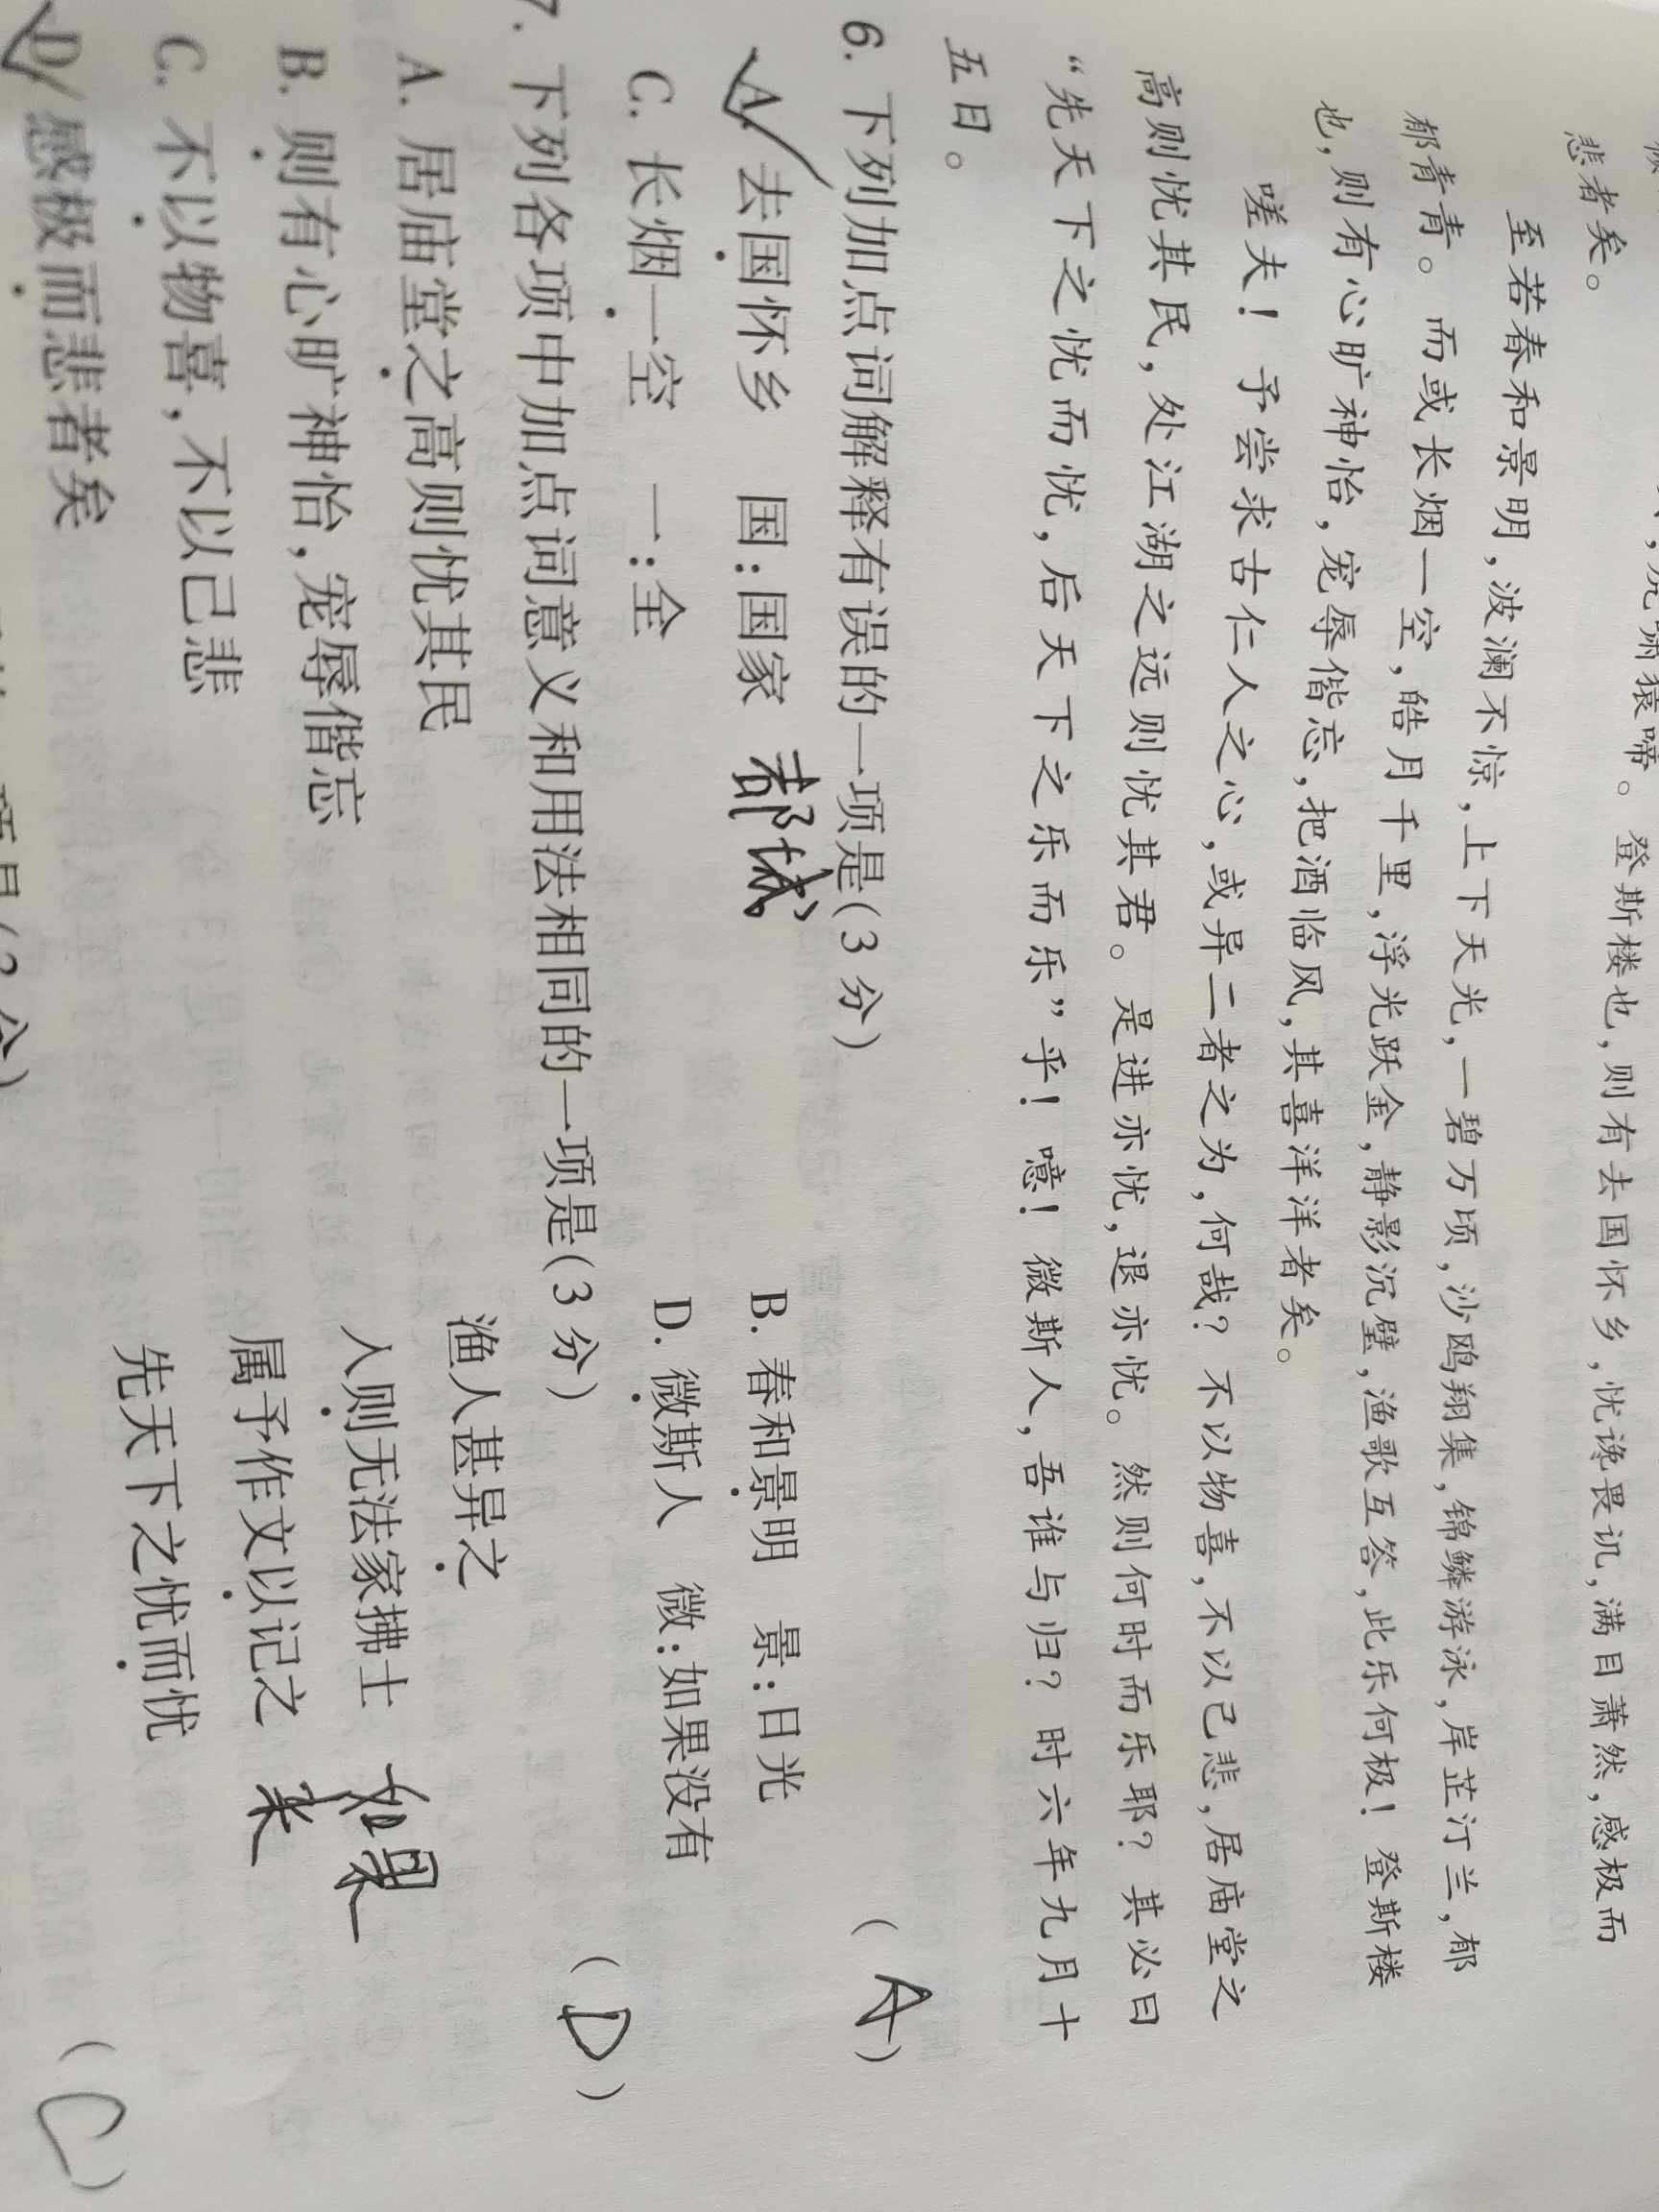 虎啸猿啼。登斯楼也，则有去国怀乡，忧谗畏讥，满目萧然，感极而
悲者矣。
至若春和景明，波澜不惊，上下天光，一碧万顷，沙鸥翔集，锦鳞游泳，岸芷汀兰，郁
郁青青。而或长烟一空，皓月千里，浮光跃金，静影沉璧，渔歌互答，此乐何极！登斯楼
也，则有心旷神怡，宠辱偕忘，把酒临风，其喜洋洋者矣。
嗟夫！予尝求古仁人之心，或异二者之为，何哉？不以物喜，不以己悲，居庙堂之
高则忧其民，处江湖之远则忧其君。是进亦忧，退亦忧。然则何时而乐耶？其必曰
“先天下之忧而忧，后天下之乐而乐”乎！噫！微斯人，吾谁与归？时六年九月十
五日。
6. 下列加点词解释有误的一项是（3 分） （ A ）
A. 去国怀乡 国：国家 都城 B. 春和景明 景：日光
C. 长烟一空 一：全 D. 微斯人 微：如果没有
7. 下列各项中加点词意义和用法相同的一项是（3 分） （ D ）
A. 居庙堂之高则忧其民 渔人甚异之
B. 则有心旷神怡，宠辱偕忘 入则无法家拂士 如果
C. 不以物喜，不以己悲 属予作文以记之 来
D. 感极而悲者矣 先天下之忧而忧
（ C ）